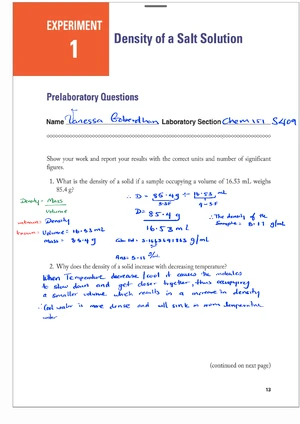 EXPERIMENT
1
Density of a Salt Solution
Prelaboratory Questions
Name Vanessa Goberdhan Laboratory Section Chem 151 S409
Show your work and report your results with the correct units and number of significant
figures.
1. What is the density of a solid if a sample occupying a volume of 16.53 mL weighs
85.4 g?
Density = Mass
Volume
unknown: Density
known: Volume = 16.53 mL
Mass = 85.4 g
∴ D = 85.4 g ÷ 16.53 mL
3-SF 4-SF
D = 85.4 g
16.53 mL
g/mL
Ans = 5.17 g/mL
∴ The density of the
Sample = 5.17 g/mL
2. Why does the density of a solid increase with decreasing temperature?
When Temperature decrease level it causes the molecules
to slow down and get closer together, thus occupying
a smaller volume which results in a increase in density
∴ Cold water is more dense and will sink in room temperature
water
(continued on next page)
13